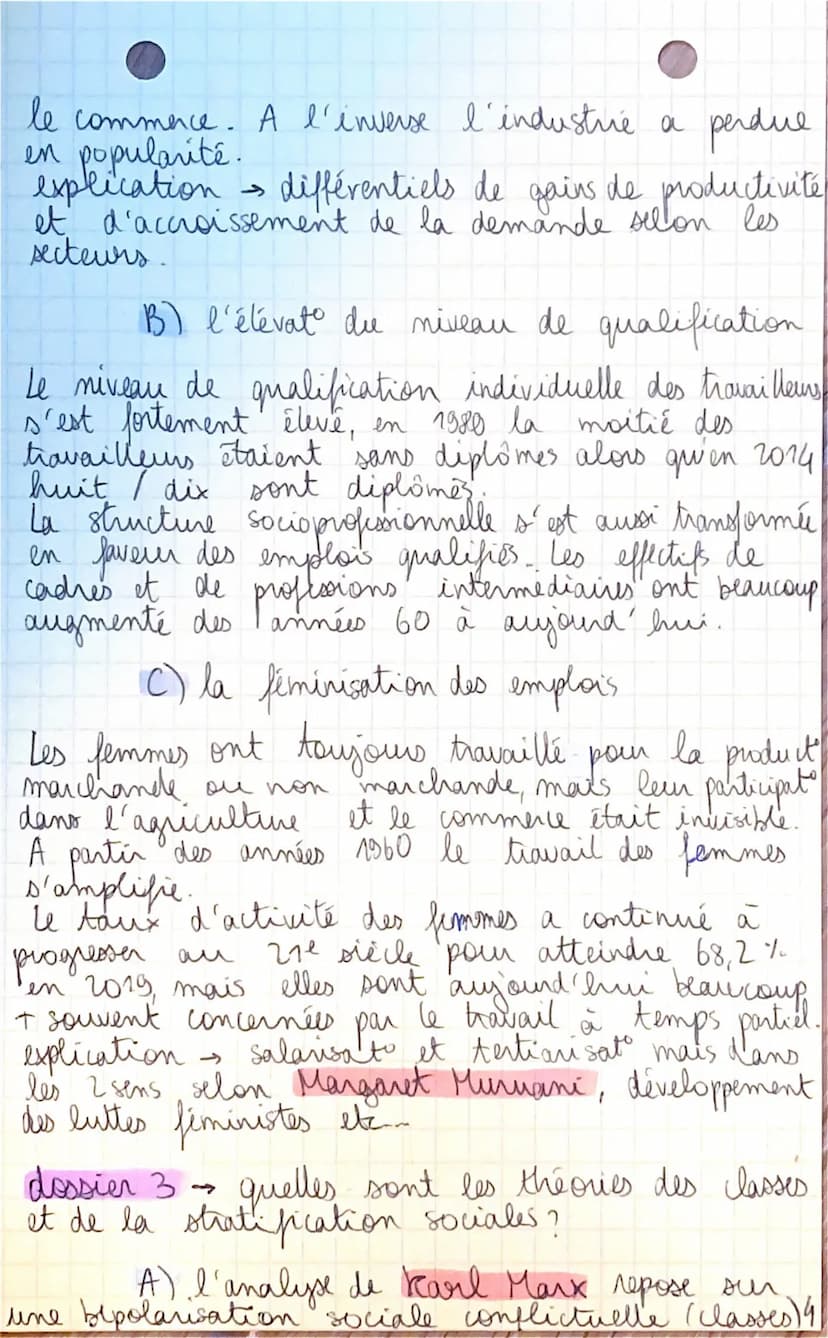 le commerce. A l'inverse l'industrie a perdue
en popularité.
explication → différentiels de gains de productivité
et d'accroissement de la demande selon les
secteurs.
B) l'élévat° du niveau de qualification
Le niveau de qualification individuelle des travailleurs
s'est fortement élevé, en 1980 la moitié des
travailleurs étaient sans diplômes alors qu'en 2014
huit / dix sont diplômés.
La structure socioprofessionnelle s'est aussi transformée
en faveur des emplois qualifiés. Les effectifs de
cadres et de professions intermédiaires ont beaucoup
augmenté des années 60 à aujourd'hui.
C) la féminisation des emplois
Les femmes ont toujours travaillé pour la product°
marchande ou non marchande, mais leur participat°
dans l'agriculture et le commerce était invisible.
A partir des années 1960 le travail des femmes
s'amplifie.
Le taux d'activité des femmes a continué à
progresser au 21e siècle pour atteindre 68,2 %
en 2019, mais elles sont aujourd'hui beaucoup
+ souvent concernées par le travail à temps partiel.
explication → salarisat° et tertiarisat° mais dans
les 2 sens selon Margaret Muruani, développement
des luttes féministes etc...
dossier 3 → quelles sont les théories des classes
et de la stratification sociales ?
A) l'analyse de Karl Marx repose sur
une bipolarisation sociale conflictuelle (classes) 4